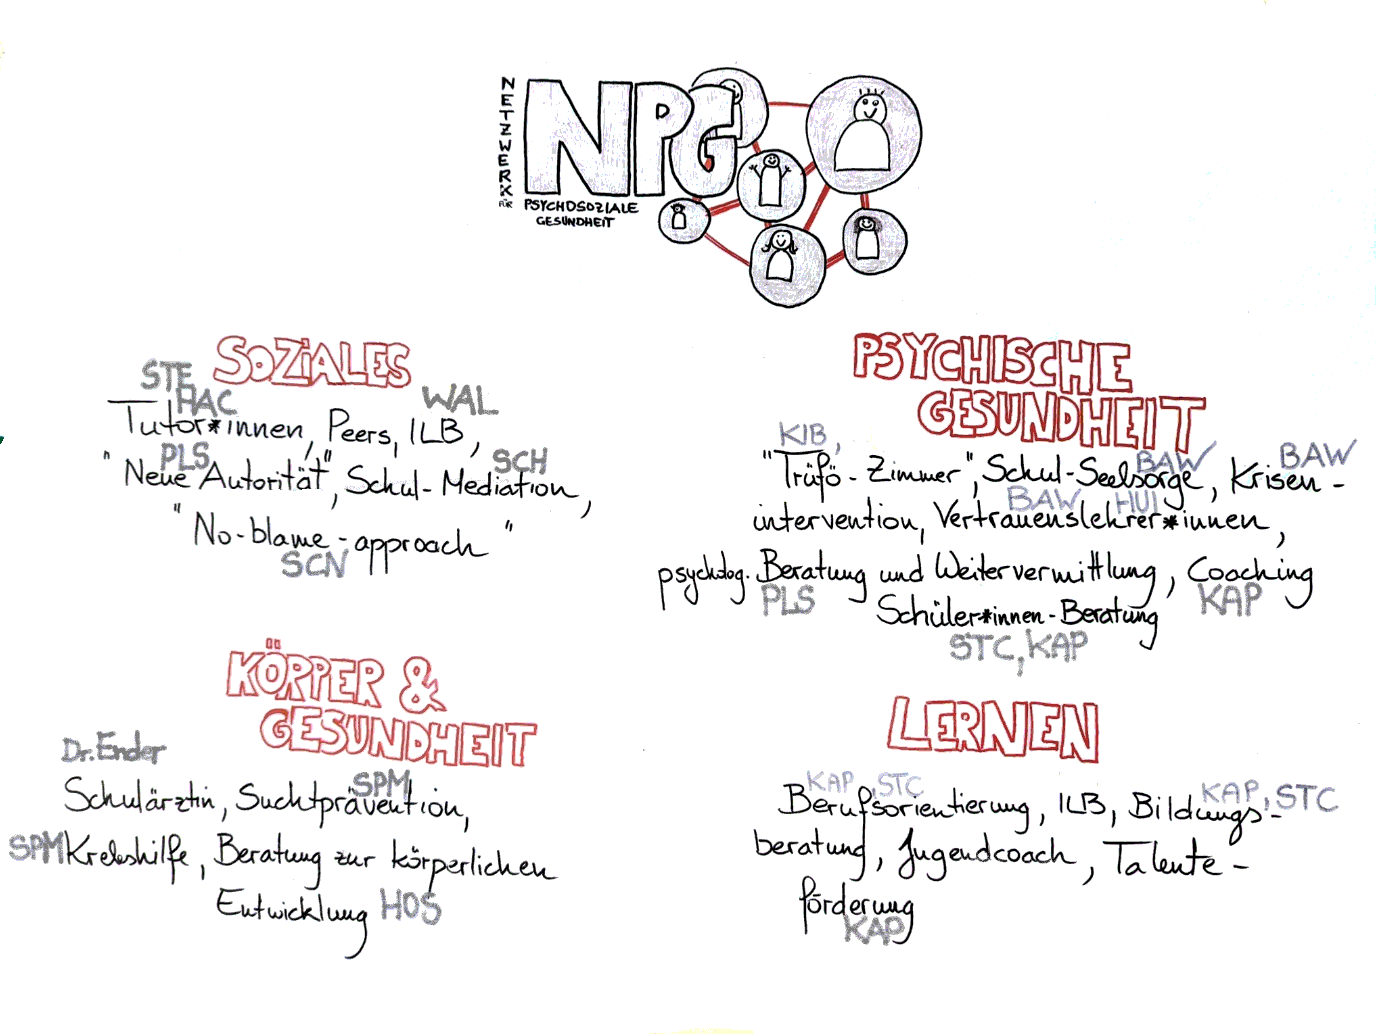 NETZWERK
FÜR
NPG
PSYCHOSOZIALE
GESUNDHEIT
SOZIALES
STE
HAC
WAL
Tutor*innen, Peers, ILB,
PLS
SCH
"Neue Autorität", Schul-Mediation,
"No-blame-approach"
SCN
PSYCHISCHE
GESUNDHEIT
KIB,
BAW
BAW
"Trüfö-Zimmer", Schul-Seelsorge, Krisen-
BAW HUI
intervention, Vertrauenslehrer*innen,
psycholog. Beratung und Weitervermittlung, Coaching
PLS
KAP
Schüler*innen-Beratung
STC, KAP
KÖRPER &
GESUNDHEIT
Dr. Ender
SPM
Schulärztin, Suchtprävention,
SPM Krebshilfe, Beratung zur körperlichen
Entwicklung HOS
LERNEN
KAP, STC
KAP, STC
Berufsorientierung, ILB, Bildungs-
beratung, Jugendcoach, Talente-
förderung
KAP